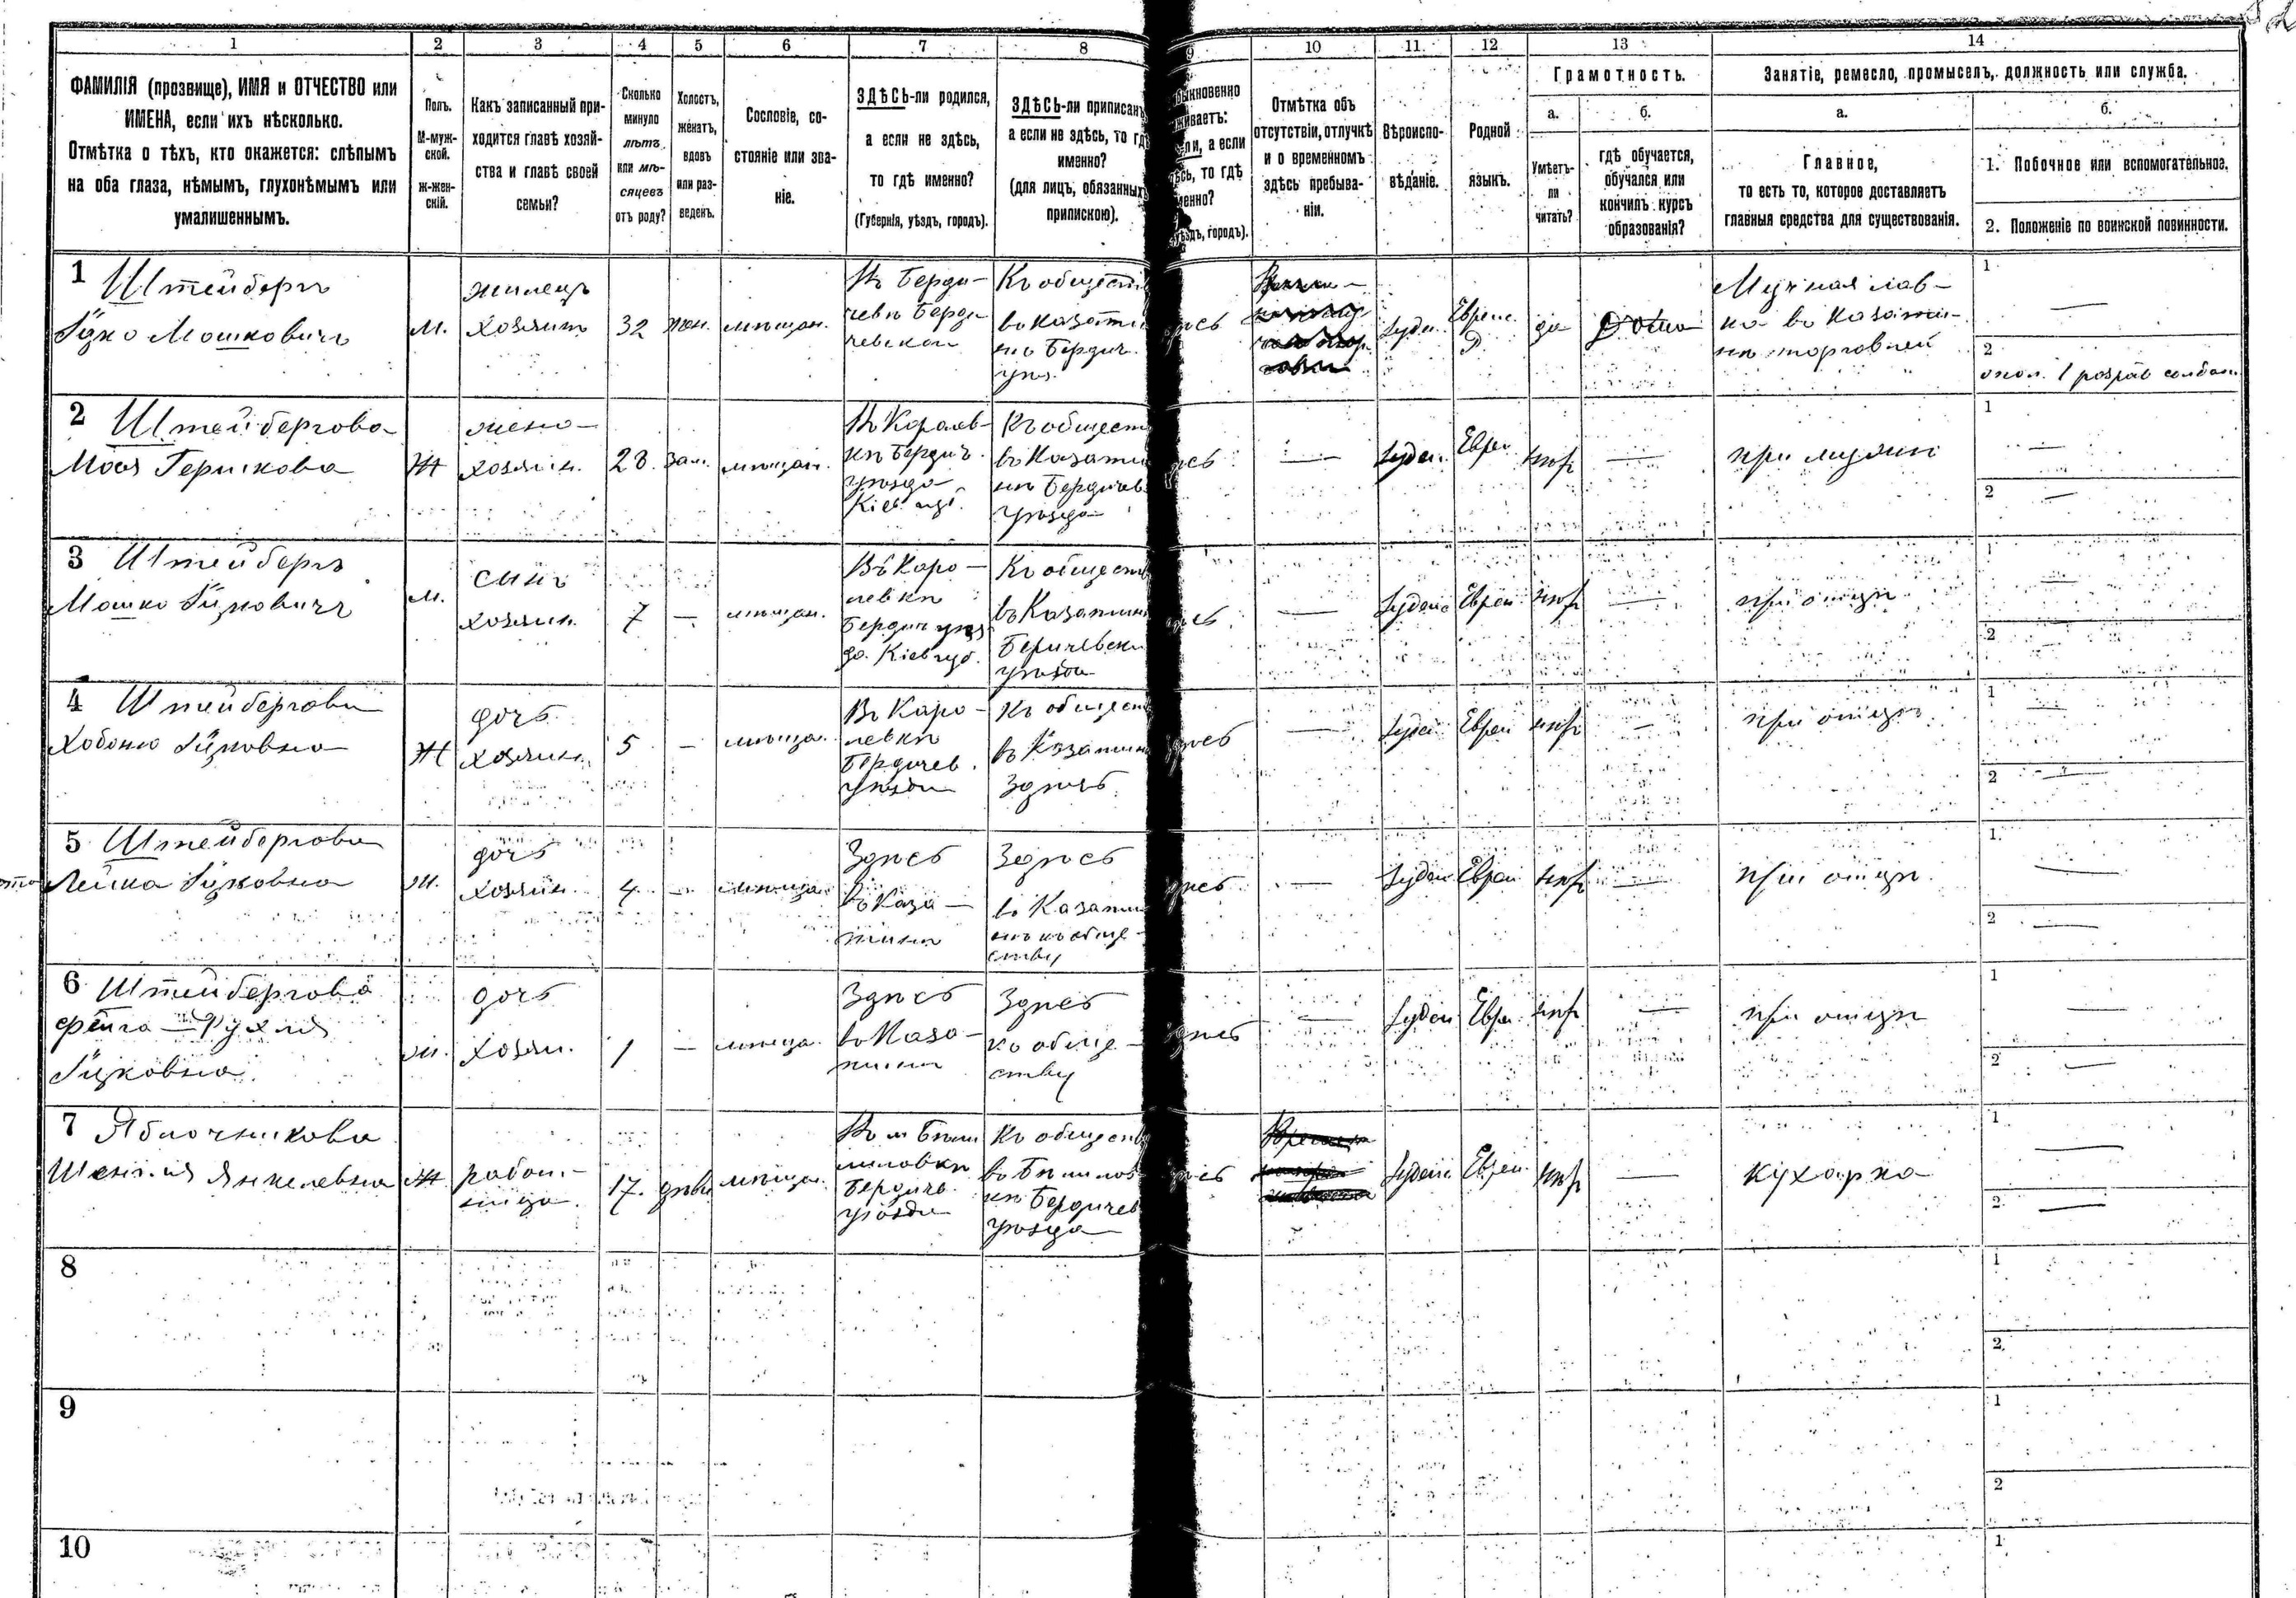 1 2 3 4 5 6 7 8 9 10 11 12 13 14
ФАМИЛІЯ (прозвище), ИМЯ и ОТЧЕСТВО или
ИМЕНА, если ихъ нѣсколько.
Отмѣтка о тѣхъ, кто окажется: слѣпымъ
на оба глаза, нѣмымъ, глухонѣмымъ или
умалишеннымъ.
Полъ.
М-муж-
ской.
ж-жен-
скій.
Какъ записанный при-
ходится главѣ хозяй-
ства и главѣ своей
семьи?
Сколько
минуло
лѣтъ
или мѣ-
сяцевъ
отъ роду?
Холостъ,
женатъ,
вдовъ
или раз-
веденъ.
Сословіе, со-
стояніе или зва-
ніе.
ЗДѢСЬ-ли родился,
а если не здѣсь,
то гдѣ именно?
(Губернія, уѣздъ, городъ).
ЗДѢСЬ-ли приписанъ
а если не здѣсь, то гд
именно?
(для лицъ, обязанныхъ
припискою).
ыкновенно
живаетъ:
ли, а если
сь, то гдѣ
менно?
уѣздъ, городъ).
Отмѣтка объ
отсутствіи, отлучкѣ
и о временномъ
здѣсь пребыва-
ніи.
Вѣроиспо-
вѣданіе.
Родной
языкъ.
Грамотность.
а.
Умѣетъ-
ли
читать?
б.
гдѣ обучается,
обучался или
кончилъ курсъ
образованія?
Занятіе, ремесло, промыселъ, должность или служба.
а.
Главное,
то есть то, которое доставляетъ
главныя средства для существованія.
б.
1. Побочное или вспомогательное.
2. Положеніе по воинской повинности.
1 Штейнберг
Іцко Мошковичъ
м.
жилецъ
хозяинъ
32
жен.
мѣщан.
Въ Берди-
чевѣ Берди
чевскаго
Къ обществ
въ Казати
нѣ Бердич.
уѣз.
ѣсь
Іуден.
Еврейс.
да
Дома
Мучная лав-
ка въ Казати-
нѣ торговлей
1
2
опол. 1 разряд
2 Штейбергова
Мася Гершкова
Ж
жена
хозяин.
28.
зам.
мѣщан.
Въ Королев-
кѣ Бердич.
уѣзда
Кіев. губ.
Къ обществ
въ Казати
нѣ Бердичев
уѣзда
ѣсь
Іуден.
Еврей
нѣт
при мужѣ
1
2
3 Штейберг
Мошко Іцковичъ
м.
сынъ
хозяин.
7
мѣщан.
Въ Каро-
левкѣ
Бердич уѣз
да. Кіев губ.
Къ обществ
въ Казатин
Бердичевска
уѣзда
ѣсь
Іуден
Еврей
нѣт
при отцѣ
1
2
4 Штейбергова
Іцковна
Ж
дочь
хозяин.
5
мѣща.
Въ Каро-
левкѣ
Бердичев.
уѣзда
Къ обществ
въ Казатин
Здѣсь
дѣсь
Іудей
Еврей
нѣт
при отцѣ
1
2
5 Штейбергова
Лейка Іцковна
ж.
дочь
хозяин.
4
мѣща.
Здѣсь
въ Каза-
тинѣ
Здѣсь
въ Казати
нѣ къ обще
ству
дѣсь
Іуден
Еврей
нѣт
при отцѣ
1
2
6 Штейбергова
Фейга - Рухля
Іцковна
ж.
дочь
хозяи.
1
мѣща.
Здѣсь
въ Каза-
тинѣ
Здѣсь
къ обще-
ству
здѣсь
Іуден
Евре.
нѣт
при отцѣ
1
2
7 Яблочникова
Янкелевна
Ж
работ-
ница
17.
дѣви
мѣща.
Въ м Бѣли
ловкѣ
Бердичев.
уѣзда
Къ обществ
въ Бѣлилов
кѣ Бердичев
уѣзда
ѣсь
Іуден.
Еврей.
нѣт
кухарка
1
2
8
1
2
9
1
2
10
1